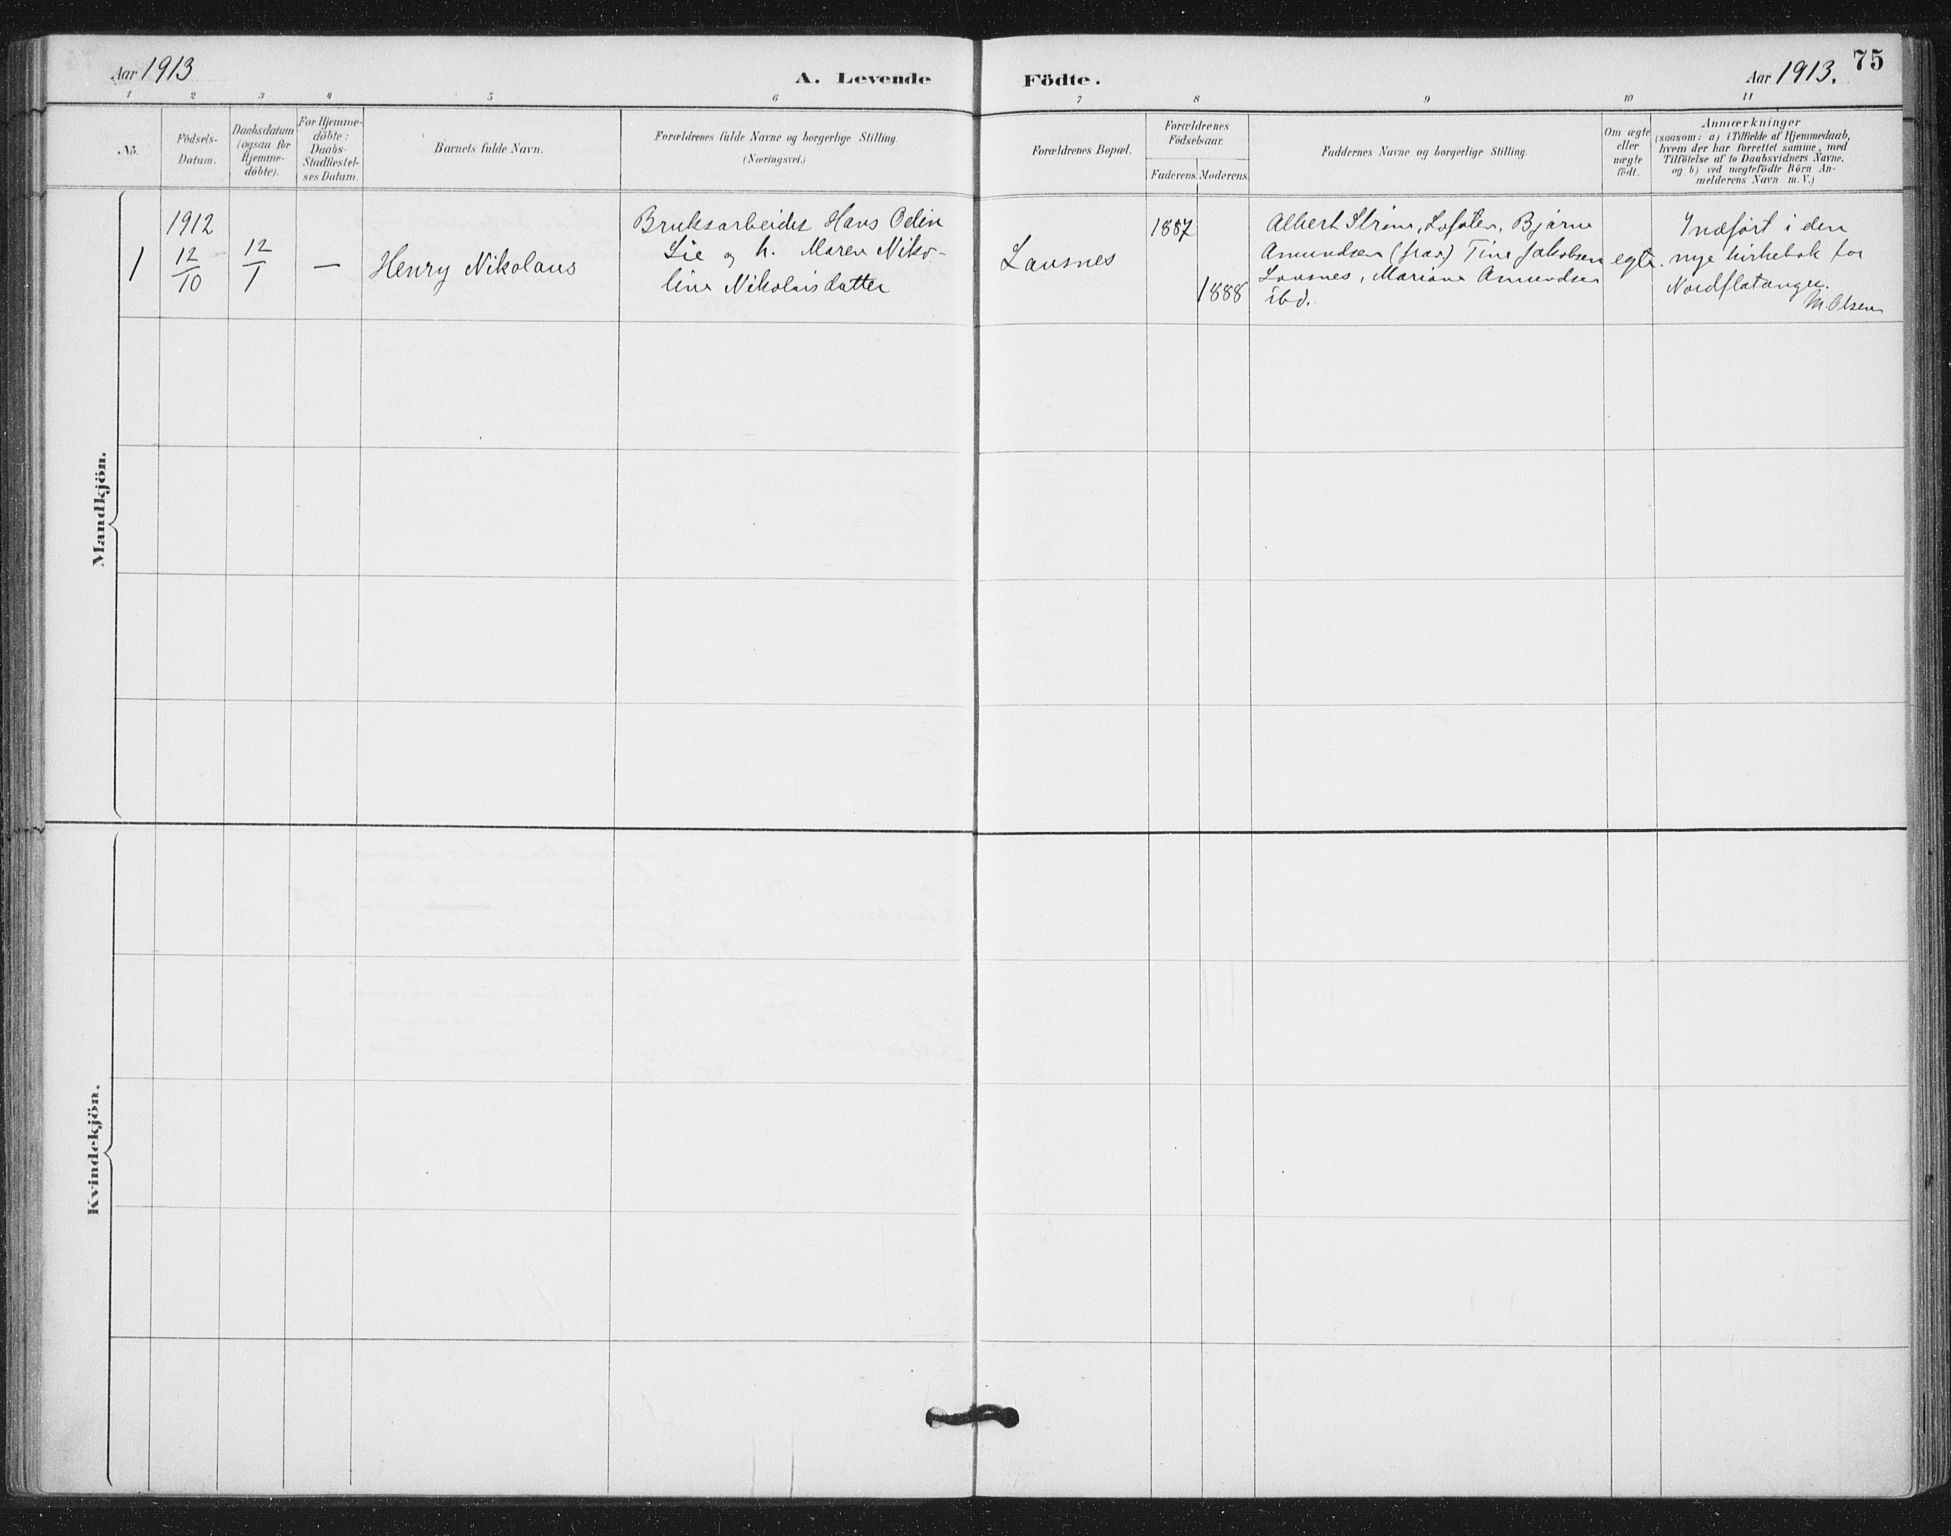 Aar 1913
A. Levende
Födte.
Aar 1913.
75
1 2 3 4 5 6 7 8 9 10 11
No.
Födsels-
Datum.
Daabsdatum
(ogsaa for
Hjemme-
döbte).
For Hjemme-
döbte:
Daabs-
Stadfæstel-
ses Datum.
Barnets fulde Navn.
Forældrenes fulde Navne og borgerlige Stilling.
(Næringsvei.)
Forældrenes Bopæl.
Forældrenes
Födselsaar.
Faderens. Moderens.
Faddernes Navne og borgerlige Stilling.
Om ægte
eller
uægte
födt.
Anmærkninger
(saasom: a) i Tilfælde af Hjemmedaab,
hvem der har forrettet samme, med
Tilföielse af to Daabsvidners Navne,
og b) ved uægtefödte Börn An-
melderens Navn m. V.)
Mandkjön.
1
1912
12/10
12/1
—
Henry Nikolaus
Bruksarbeider Hans Odin
Lie og h. Maren Niko-
line Nikolaisdatter
Lausnes
1887
1888
Albert Strøm, Bjarne
Amundsen Tine Jakobsen
Lausnes, Mariane Amundsen
ibd.
egte.
Indført i den
nye kirkebok for
Nordflatanger.
M. Olsen
Kvindekjön.